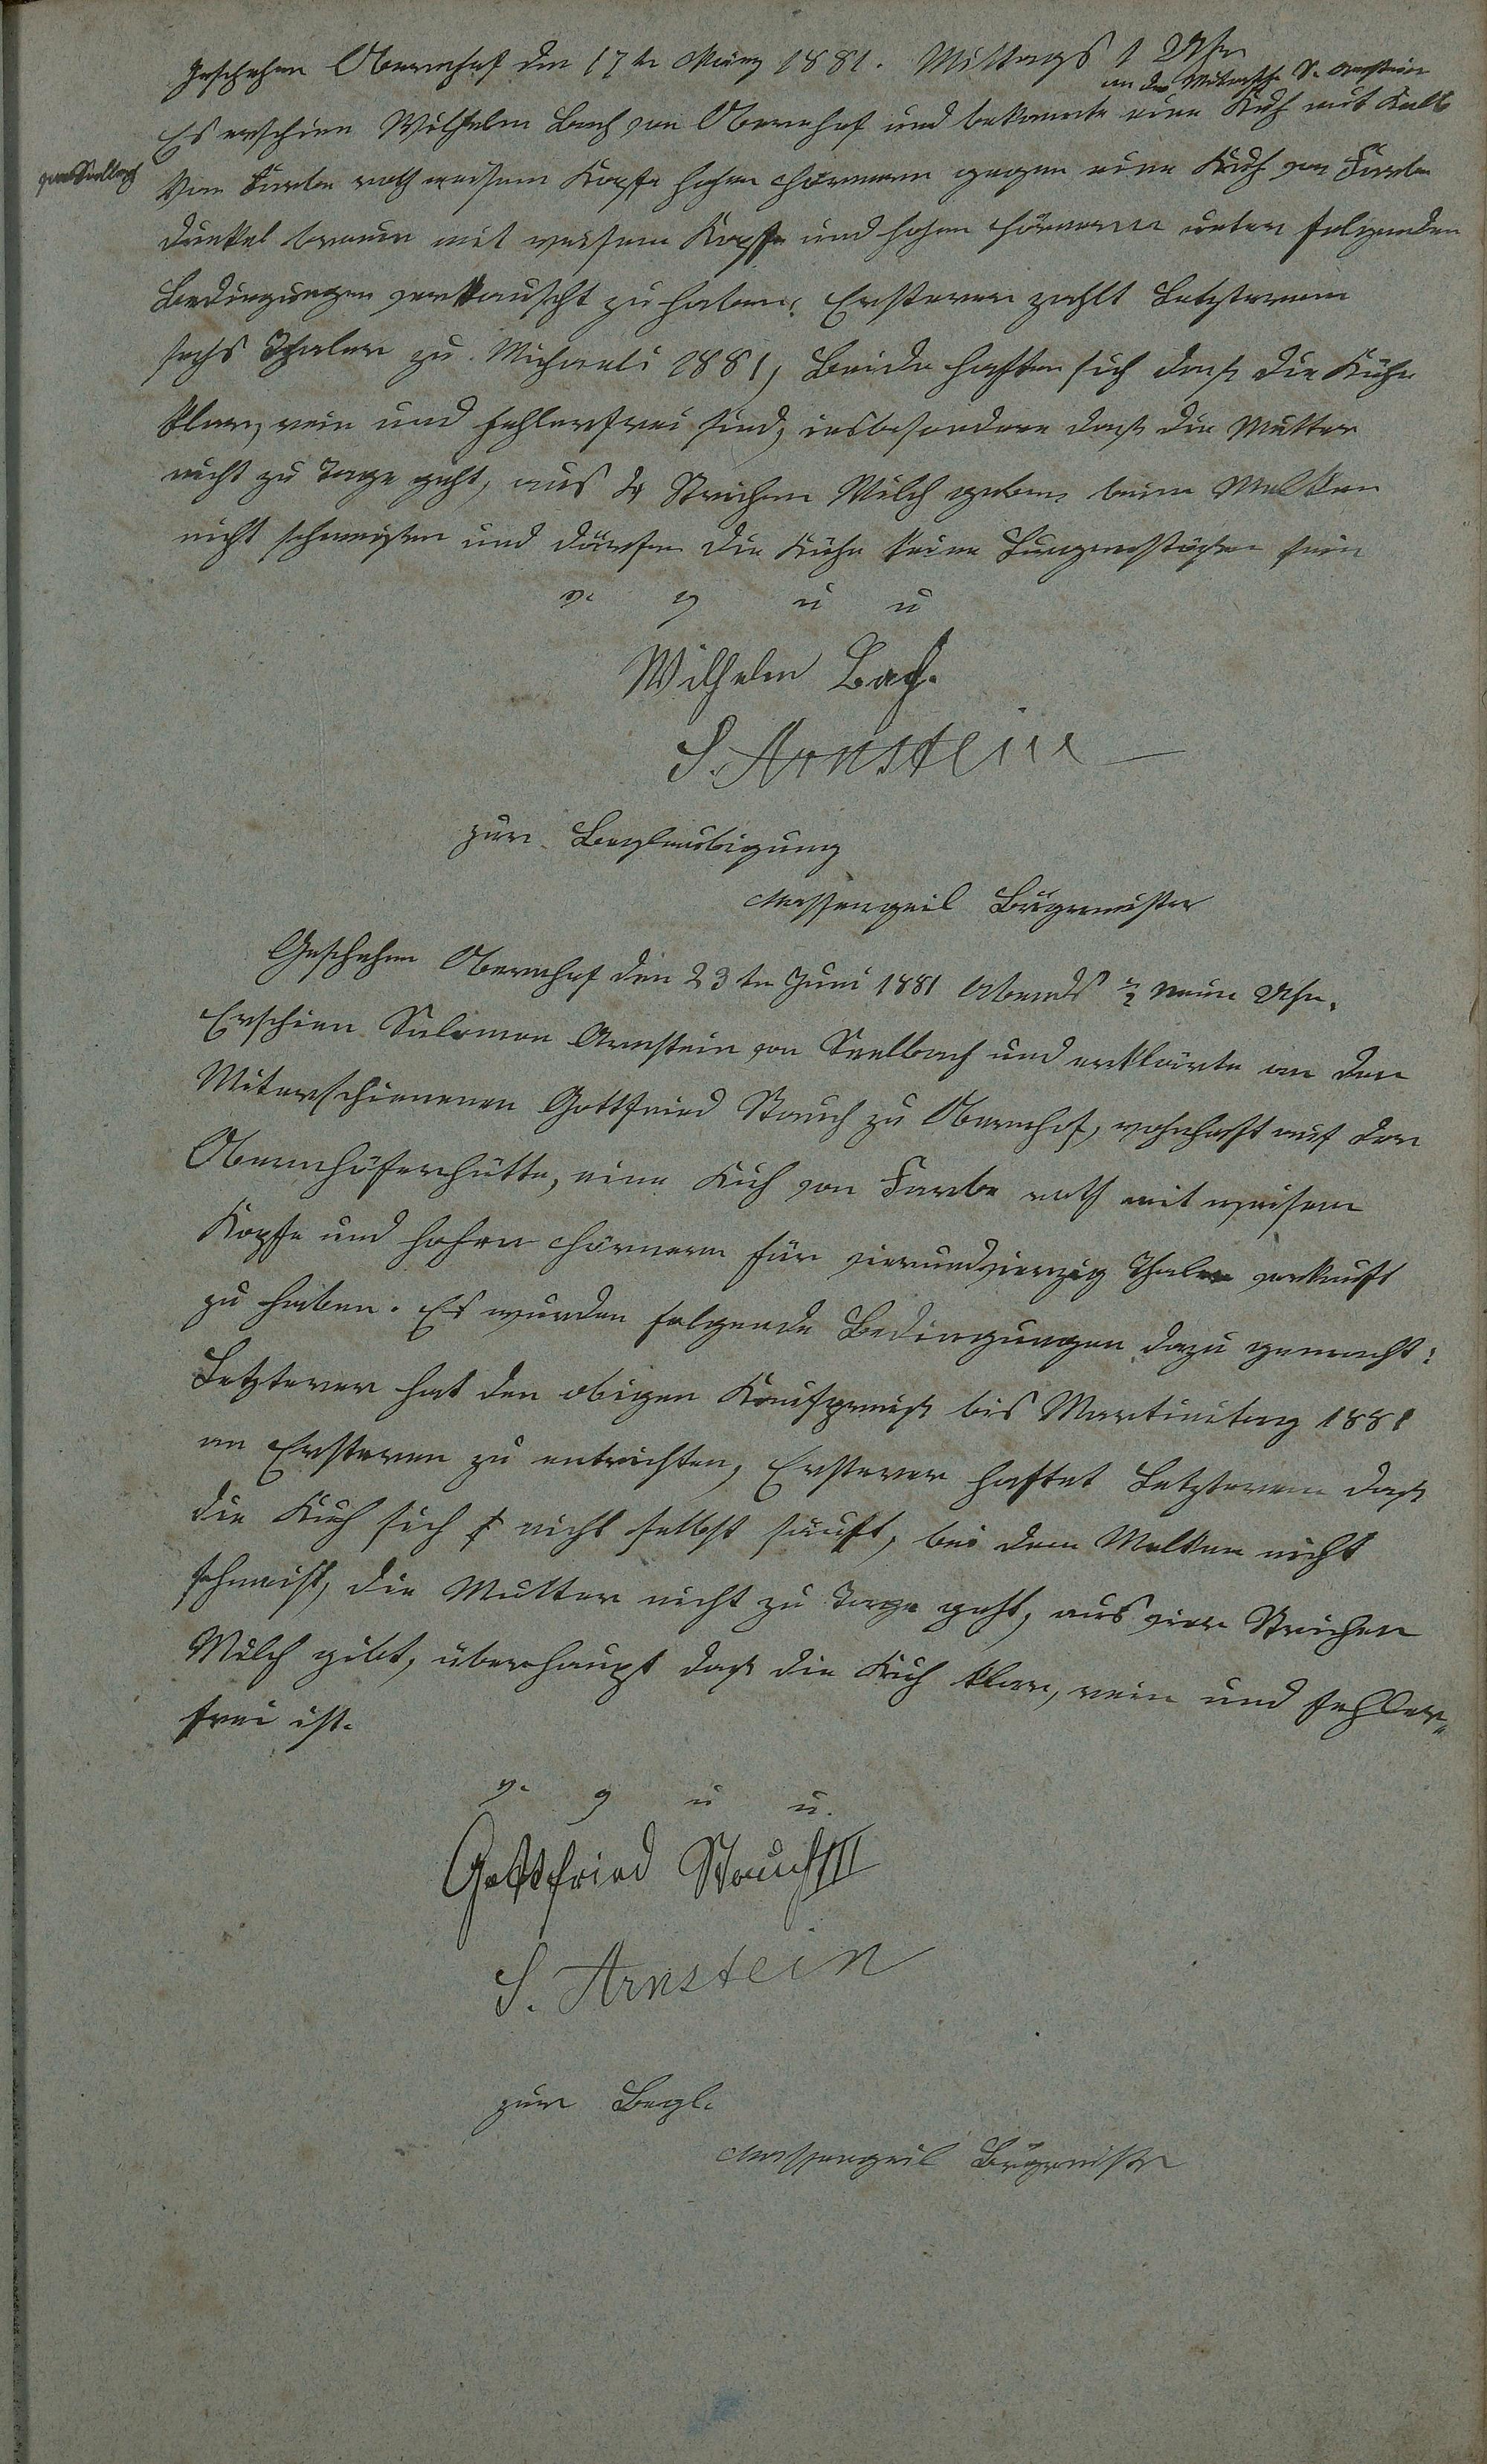 Geschehen Obernhof den 17ten März 1881. Mittags 1 Uhr
an den Mitersch. S. Arnstein
Es erschien Wilhelm Bach von Obernhof und bekannte eine Kuh mit Kalb
von Seelbach
Von Farbe roth weisem Kopfe hohen Hörnern gegen eine Kuh von Farbe
dunkel braun mit weisem Kopfe und hohen Hörnern unter folgenden
Bedingungen vertauscht zu haben. Ersterer zahlt Letzterem
sechs Thaler zu Michaeli 1881, Beide haften sich daß die Kühe
klar, rein und fehlerfrei sind, insbesondere daß die Mutter
nicht zu Tage geht, aus 4 Strichen Milch geben beim Melken
nicht schmeißen und dürfen die Kühe keine Zungenstößer sein
v. g u u
Wilhelm Bach.
S. Arnstein
zur Beglaubigung
Massengeil Bürgermeister
Geschehen Obernhof den 23ten Juni 1881 Abends ½ neun Uhr.
Erschien Salomon Arnstein von Seelbach und erklärte an den
Miterschienenen Gottfried Stauch zu Obernhof, wohnhaft auf der
Obernhöferhütte, eine Kuh von Farbe roth mit weisem
Kopfe und hohen Hörnern für vierundvierzig Thaler verkauft
zu haben. Es wurden folgende Bedingungen dazu gemacht:
Letzterer hat den obigen Kaufpreiß bis Martinitag 1881
an Ersteren zu entrichten, Ersterer haftet Letzterem daß
die Kuh sich nicht selbst säuft, bei dem Melken nicht
schmeist, die Mutter nicht zu Tage geht, aus vier Strichen
Milch gibt, überhaupt daß die Kuh klar, rein und fehler-
frei ist.
v. g u u.
Gottfried Stauch III
S. Arnstein
zur Begl.
Massengeil Bürgermeister